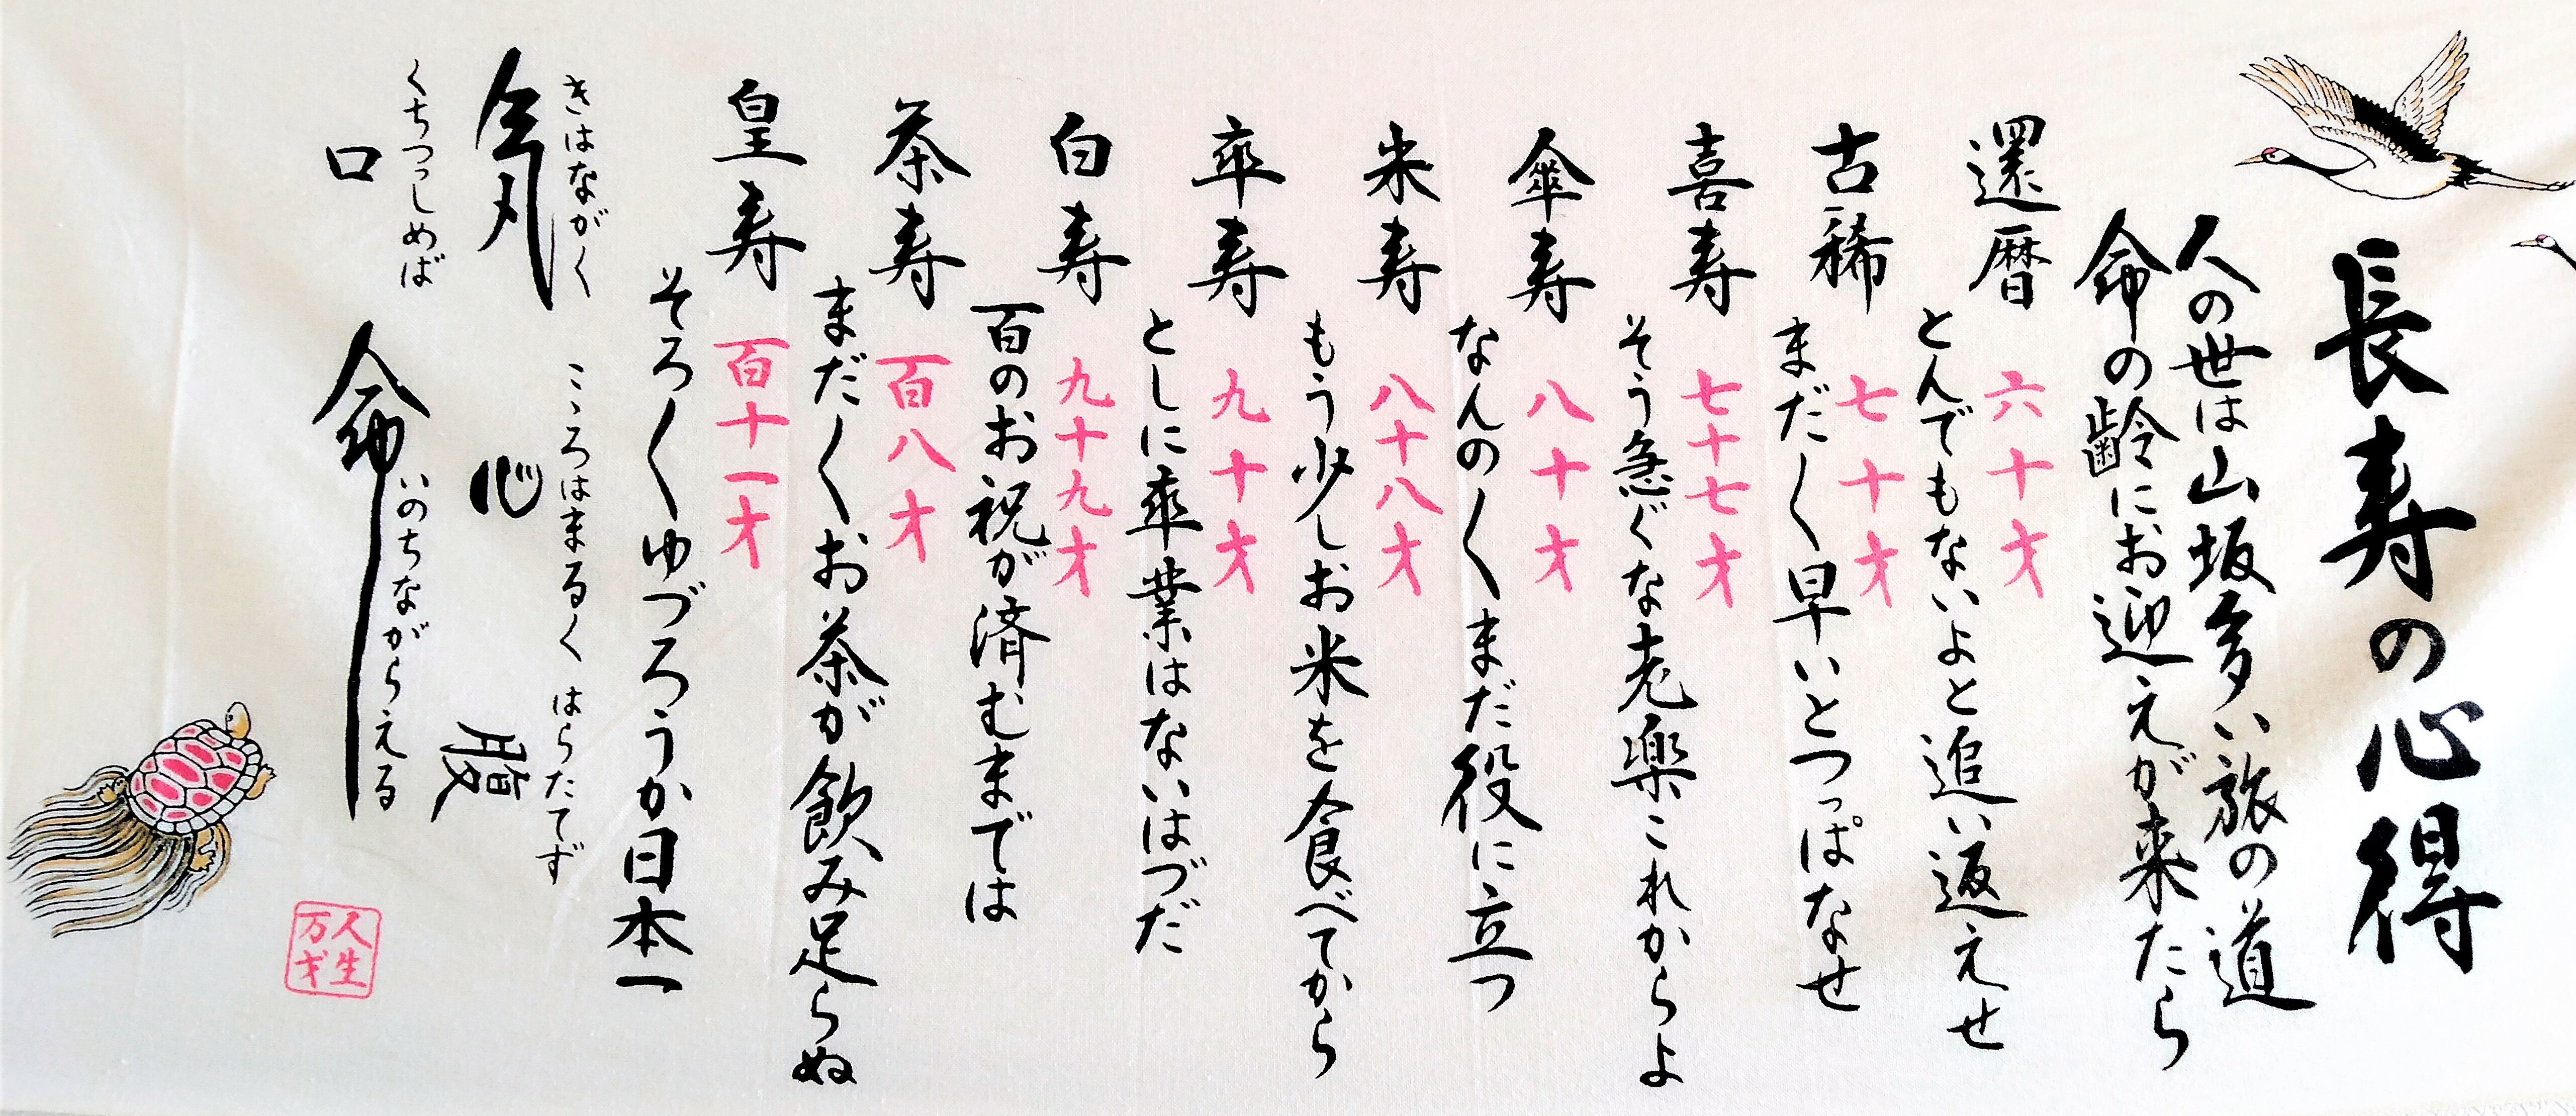 長寿の心得
人の世は山坂多い旅の道
命の齢にお迎えが来たら
還暦 六十才
とんでもないよと追い返えせ
古稀 七十才
まだ〱早いとつっぱなせ
喜寿 七十七才
そう急ぐな老楽これからよ
傘寿 八十才
なんの〱まだ役に立つ
米寿 八十八才
もう少しお米を食べてから
卒寿 九十才
としに卒業はないはづだ
白寿 九十九才
百のお祝が済むまでは
茶寿 百八才
まだ〱お茶が飲み足らぬ
皇寿 百十一才
そろ〱ゆづろうか日本一
きはながく こゝろはまるく はらたてず
気 心 腹
くちつつしめば いのちながらえる
口 命
人生
万才